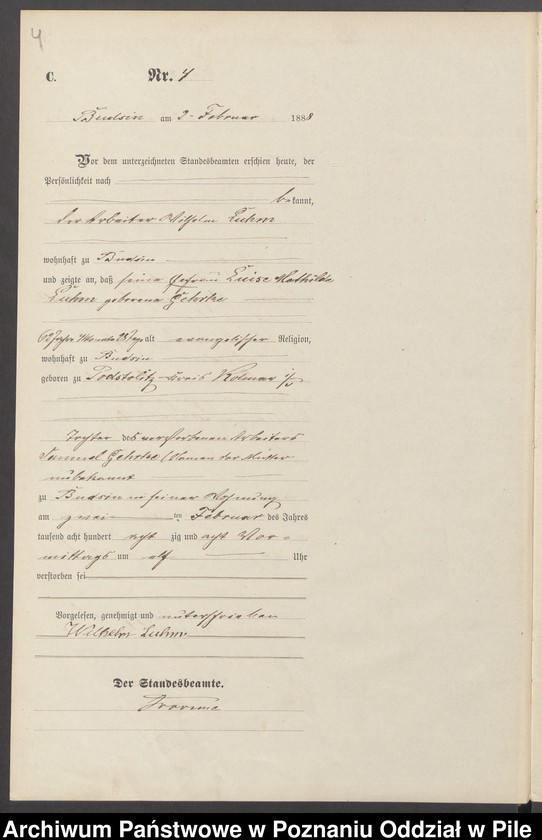 4
C. Nr. 4
Budsin am 2. Februar 1888
Vor dem unterzeichneten Standesbeamten erschien heute, der
Persönlichkeit nach
bekannt,
der Arbeiter Wilhelm Luhm
wohnhaft zu Budsin
und zeigte an, daß seine Ehefrau Luise Mathilde
Luhm geborene Gehrke
Jahre Monate Tage alt evangelischer Religion,
wohnhaft zu Budsin
geboren zu Podstolitz Kreis Kolmar i/P
Tochter des verstorbenen Arbeiters
Samuel Gehrke (Namen der Mutter
unbekannt
zu Budsin in seiner Wohnung
am zwei ten Februar des Jahres
tausend acht hundert acht zig und acht Vor-
mittags um elf Uhr
verstorben sei
Vorgelesen, genehmigt und unterschrieben
Wilhelm Luhm
Der Standesbeamte.
Archiwum Państwowe w Poznaniu Oddział w Pile